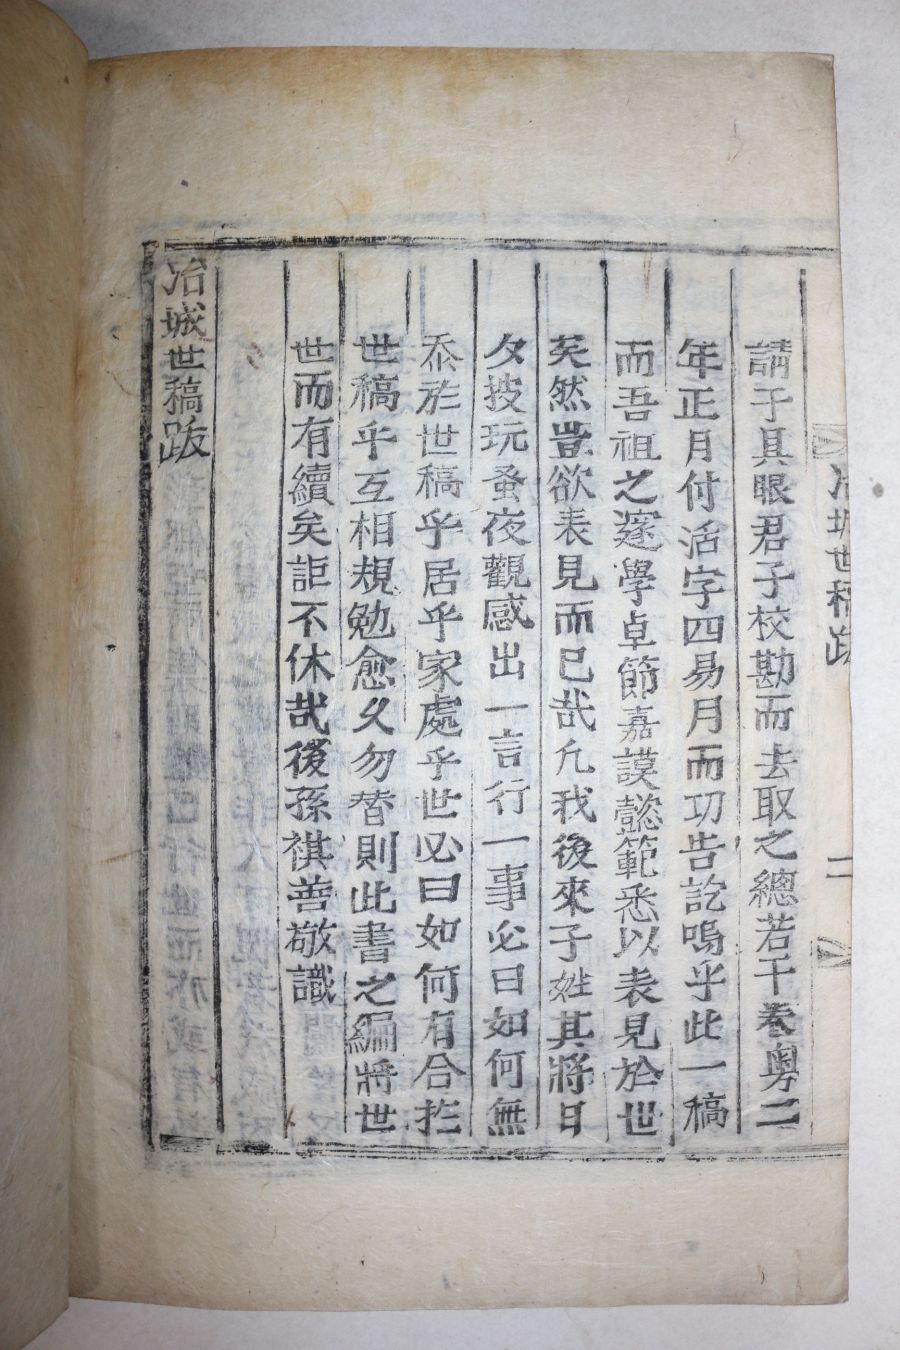 冶城世稿跋
二
請于具眼君子校勘而去取之總若干卷粤二
年正月付活字四易月而功告訖嗚乎此一稿
而吾祖之邃學卓節嘉謨懿範悉以表見於世
矣然豈欲表見而已哉凡我後來子姓其將日
夕披玩蚤夜觀感出一言行一事必曰如何無
忝於世稿乎居乎家處乎世必曰如何有合於
世稿乎互相規勉愈久勿替則此書之編將世
世而有續矣詎不休哉後孫祺善敬識
冶城世稿跋